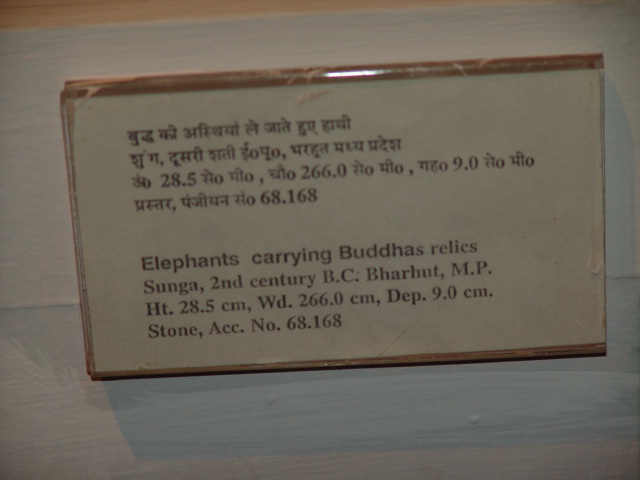 बुद्ध की अस्थियां ले जाते हुए हाथी
शुंग, दूसरी शती ई०पू०, भरहूत मध्य प्रदेश
ऊं० 28.5 से० मी०, चौ० 266.0 से० मी०, गह० 9.0 से० मी०
प्रस्तर, पंजीयन सं० 68.168
Elephants carrying Buddhas relics
Sunga, 2nd century B.C: Bharhut, M.P.
Ht. 28.5 cm, Wd. 266.0 cm, Dep. 9.0 cm.
Stone, Acc. No. 68.168